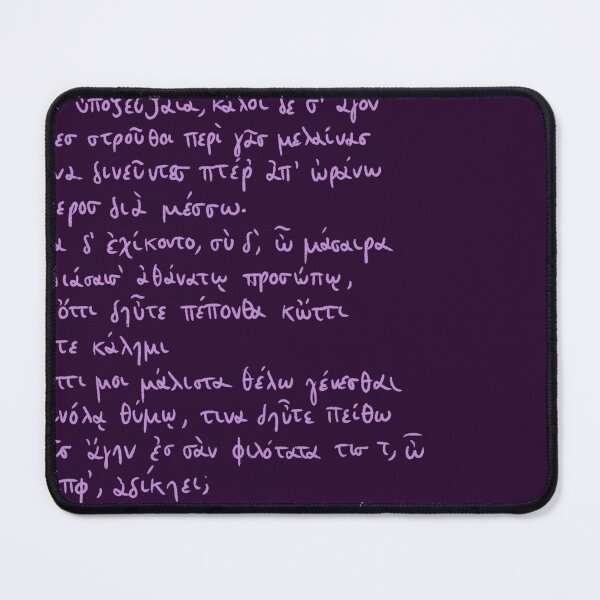 ὐποζευξαια, κάλοι δέ σ' ἄγον
εσ στροῦθοι περὶ γᾶσ μελαίνασ
να δινεῦντεσ πτέρ' ἀπ' ὠράνω
εροσ διὰ μέσσω.
α δ' ἐχίκοντο, σὺ δ', ὦ μάσαιρα
διάσαισ' ἀθάνατῳ προσώπῳ,
ὄττι δηὖτε πέπονθα κὤττι
τε κάλημι
ττι μοι μάλιστα θέλω γένεσθαι
νόλᾳ θύμῳ, τινα δηὖτε πείθω
σ ἄγην ἐσ σὰν φιλότατα τισ τ, ὦ
πφ', ἀδίκηει;